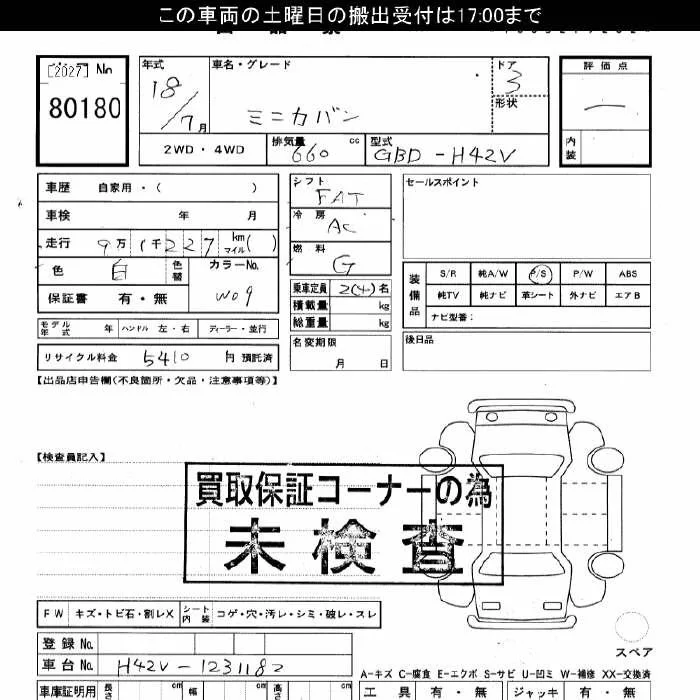 この車両の土曜日の搬出受付は17:00まで
[2027] No
80180
年式
18/7月
車名・グレード
ミニカバン
ドア
3
形状
評価点
—
内装
2WD・4WD
排気量
660 cc
型式
GBD-H42V
車歴 自家用・( )
車検 年 月
走行 9万1千227 km マイル( )
色 白 色替 カラーNo. W09
保証書 有・無
モデル年式 年 ハンドル 左・右 ディーラー・並行
リサイクル料金 5410 円 預託済
シフト
FAT
冷房
AC
燃料
G
乗車定員 2(4)名
積載量 kg
総重量 kg
名変期限
月 日
セールスポイント
装備品
S/R 純A/W P/S P/W ABS
純TV 純ナビ 革シート 外ナビ エアB
ナビ型番:
後日品
【出品店申告欄(不良箇所・欠品・注意事項等)】
【検査員記入】
買取保証コーナーの為
未検査
FW キズ・トビ石・割レX シート内装 コゲ・穴・汚レ・シミ・破レ・スレ
登録No.
車台No. H42V-1231182
スペア
A-キズ C-腐食 E-エクボ S-サビ U-凹ミ W-補修 XX-交換済
車庫証明用 長さ cm 幅 cm 高さ cm
工具 有・無 ジャッキ 有・無